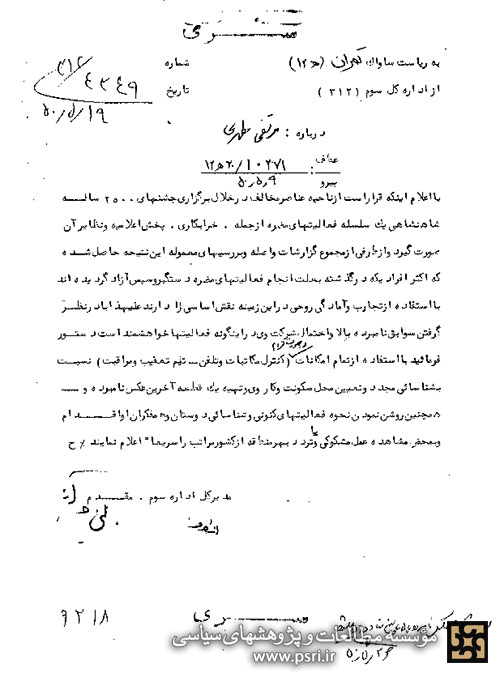 سری
به ریاست ساواک تهران (۱۲ه)
شماره ۳۱۲/۴۳۴۹
از اداره کل سوم (۳۱۲)
تاریخ ۵۰/۵/۱۹
درباره : مرتضی مطهری
عطف :
پیرو : ۱۰۲۷۱/۲۰ه۱۲
۵۰/۵/۹
با اعلام اینکه قرار است از ناحیه عناصر مخالف در خلال برگزاری جشنهای ۲۵۰۰ ساله
شاهنشاهی یک سلسله فعالیتهای مضره از جمله . خرابکاری . پخش اعلامیه و نظایر آن
صورت گیرد و از طرفی از مجموع گزارشات واصله و بررسیهای معموله این نتیجه حاصل شده
که اکثر افرادیکه در گذشته بعلت انجام فعالیتهای مضره دستگیر و سپس آزاد گردیده اند
با استفاده از تجارب و آمادگی روحی در این زمینه نقش اساسی را دارند علیهذا با در نظر
گرفتن سوابق نامبرده بالا و احتمال شرکت وی در اینگونه فعالیتها خواهشمند است دستور
فرمائید با استفاده از تمام امکانات (کنترل مکاتبات و تلفن ــ تیم تعقیب و مراقبت) نسبت
بشناسائی مجدد و تعیین محل سکونت و کار وی و تهیه یک قطعه آخرین عکس نامبرده و
همچنین روشن نمودن نحوه فعالیتهای کنونی و شناسائی دوستان و همفکران او اقدام
و بمحض مشاهده عمل مشکوکی و یا تردد بهر منطقه از کشور مراتب را سریعا" اعلام نمایند ٪ ح
مدیر کل اداره سوم . مقدم
۹۲۱۸
سری
۵۰/۵/۲۶
مؤسسه مطالعات و پژوهشهای سیاسی
www.psri.ir